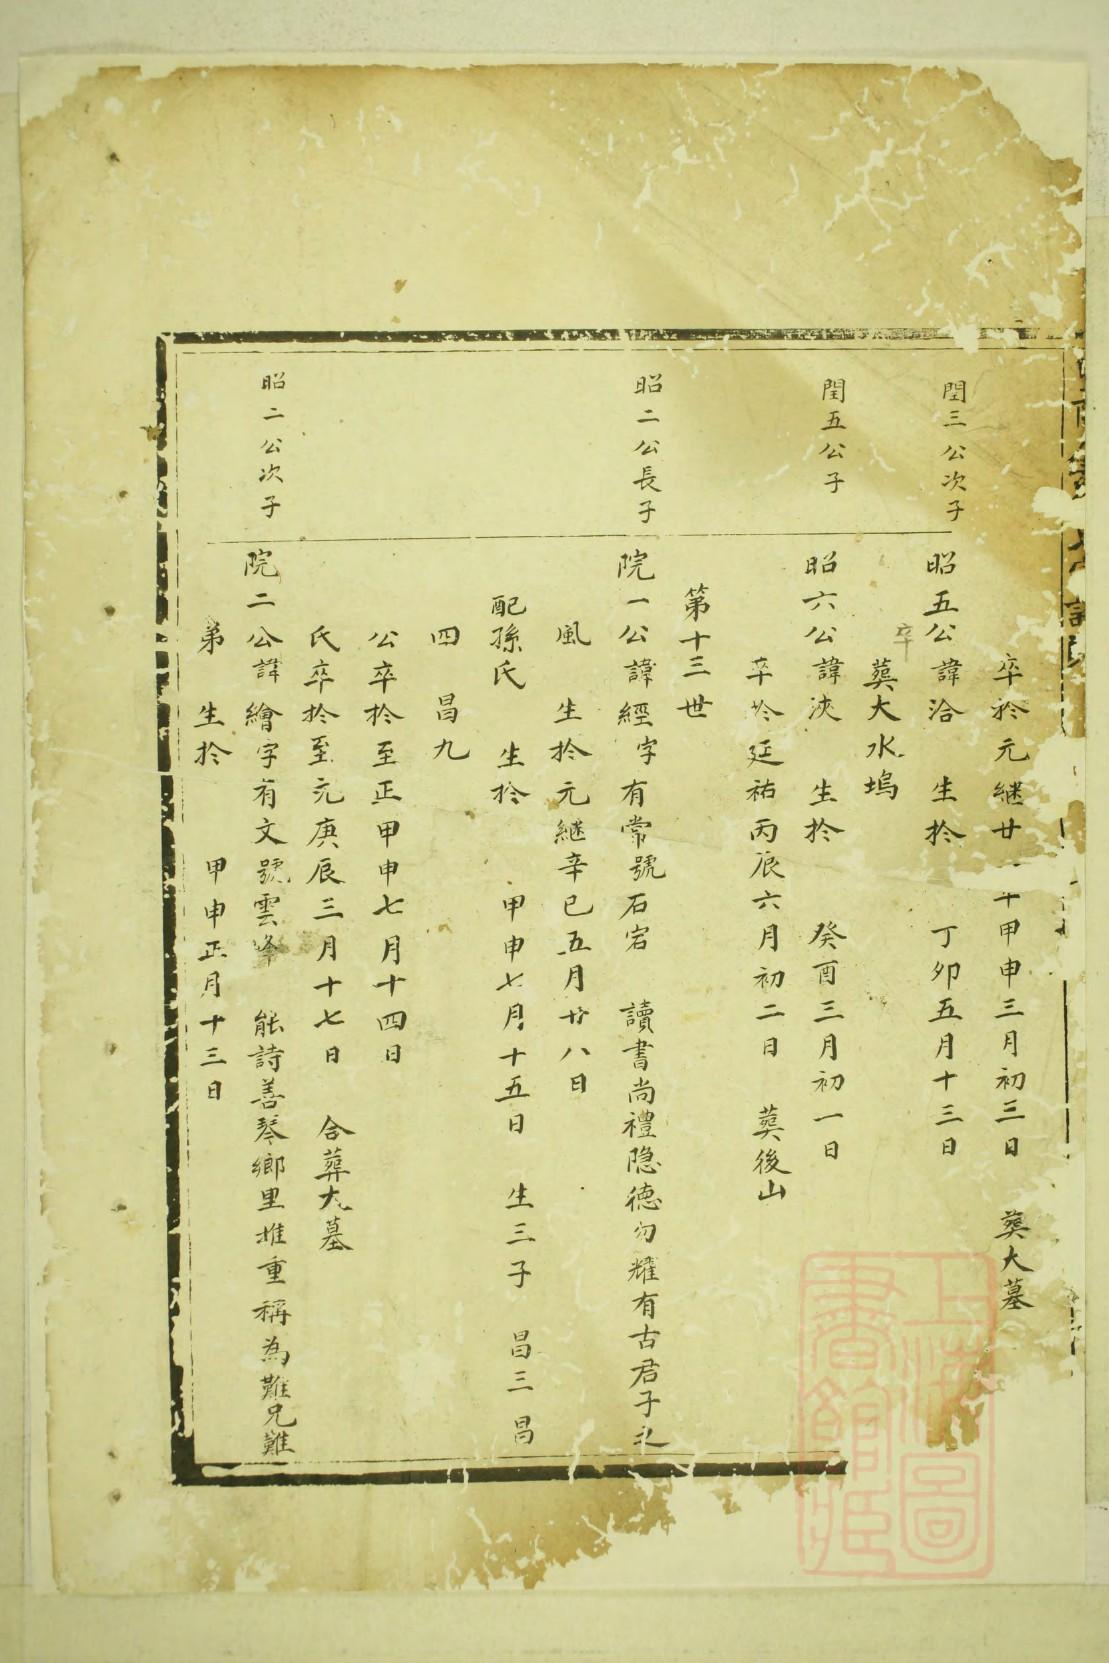 卒於元継廿 甲申三月初三日 葬大墓
閏三公次子
昭五公諱洽 生於 丁卯五月十三日
卒
葬大水塢
閏五公子
昭六公諱浹 生於 癸酉三月初一日
卒於廷祐丙辰六月初二日 葬後山
第十三世
昭二公長子
院一公諱經字有常號石宕 讀書尚禮隐德勿耀有古君子之
風 生於元継辛巳五月廿八日
配孫氏 生於 甲申七月十五日 生三子 昌三昌
四 昌九
公卒於至正甲申七月十四日
氏卒於至元庚辰三月十七日 合葬大墓
昭二公次子
院二公諱繪字有文號雲峰 能詩善琴鄉里推重稱為難兄難
弟 生於 甲申正月十三日
上海圖書館藏